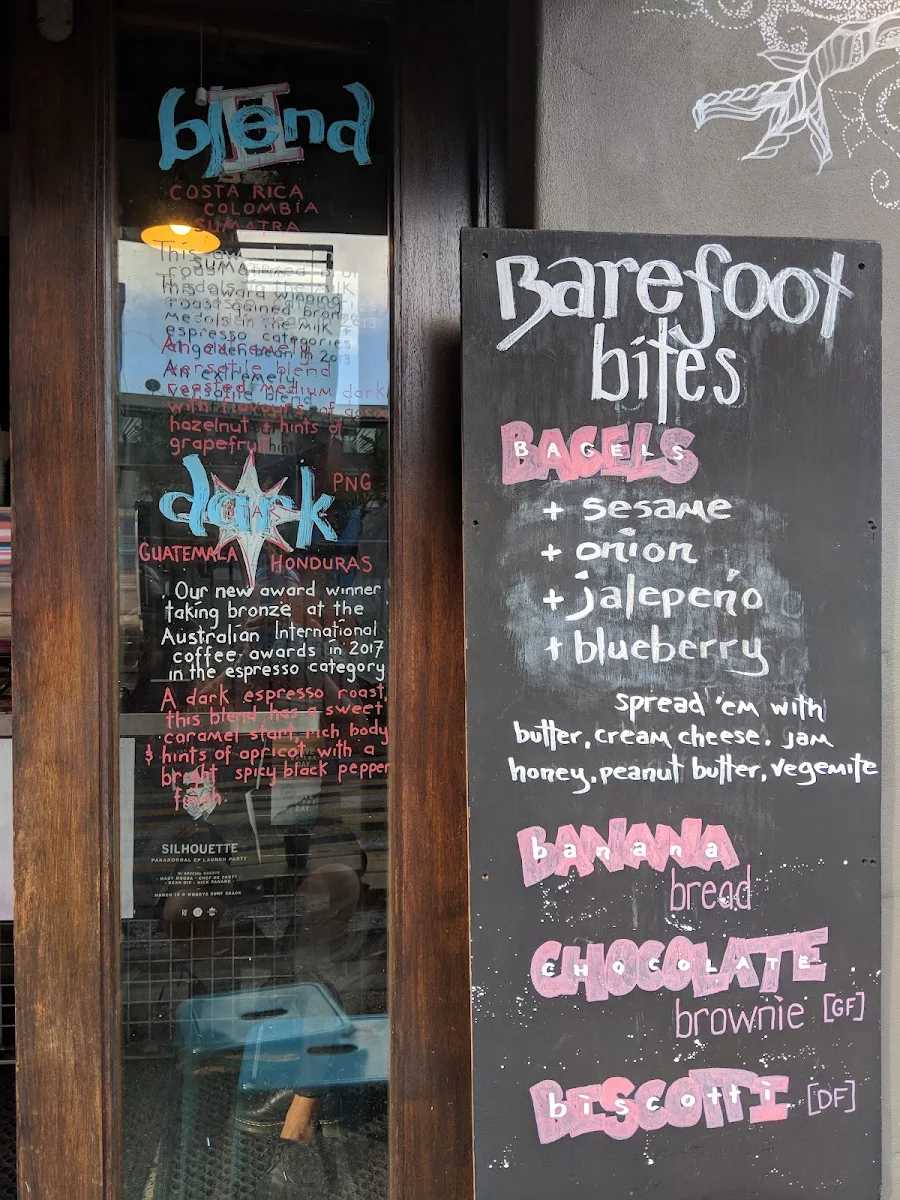 blend
II
COSTA RICA
COLOMBIA
SUMATRA
This award winning
roast gained bronze
medals in the milk
espresso categories
An extremely
versatile blend
roasted medium dark
with flavours of
hazelnut + hints of
grapefruit
dark
STAR
PNG
GUATEMALA
HONDURAS
Our new award winner
taking bronze at the
Australian International
coffee awards in 2017
in the espresso category
A dark espresso roast,
this blend has a sweet
caramel start, rich body
& hints of apricot with a
bright spicy black pepper
finish.
SILHOUETTE
PARANORMAL EP LAUNCH PARTY
W/ SPECIAL GUESTS
MARCH 18 @ WOODYS SURF SHACK
Barefoot
bites
BAGELS
+ sesame
+ onion
+ jalepeño
+ blueberry
spread 'em with
butter, cream cheese, jam
honey, peanut butter, vegemite
BANANA
bread
CHOCOLATE
brownie [GF]
BISCOTTI [DF]